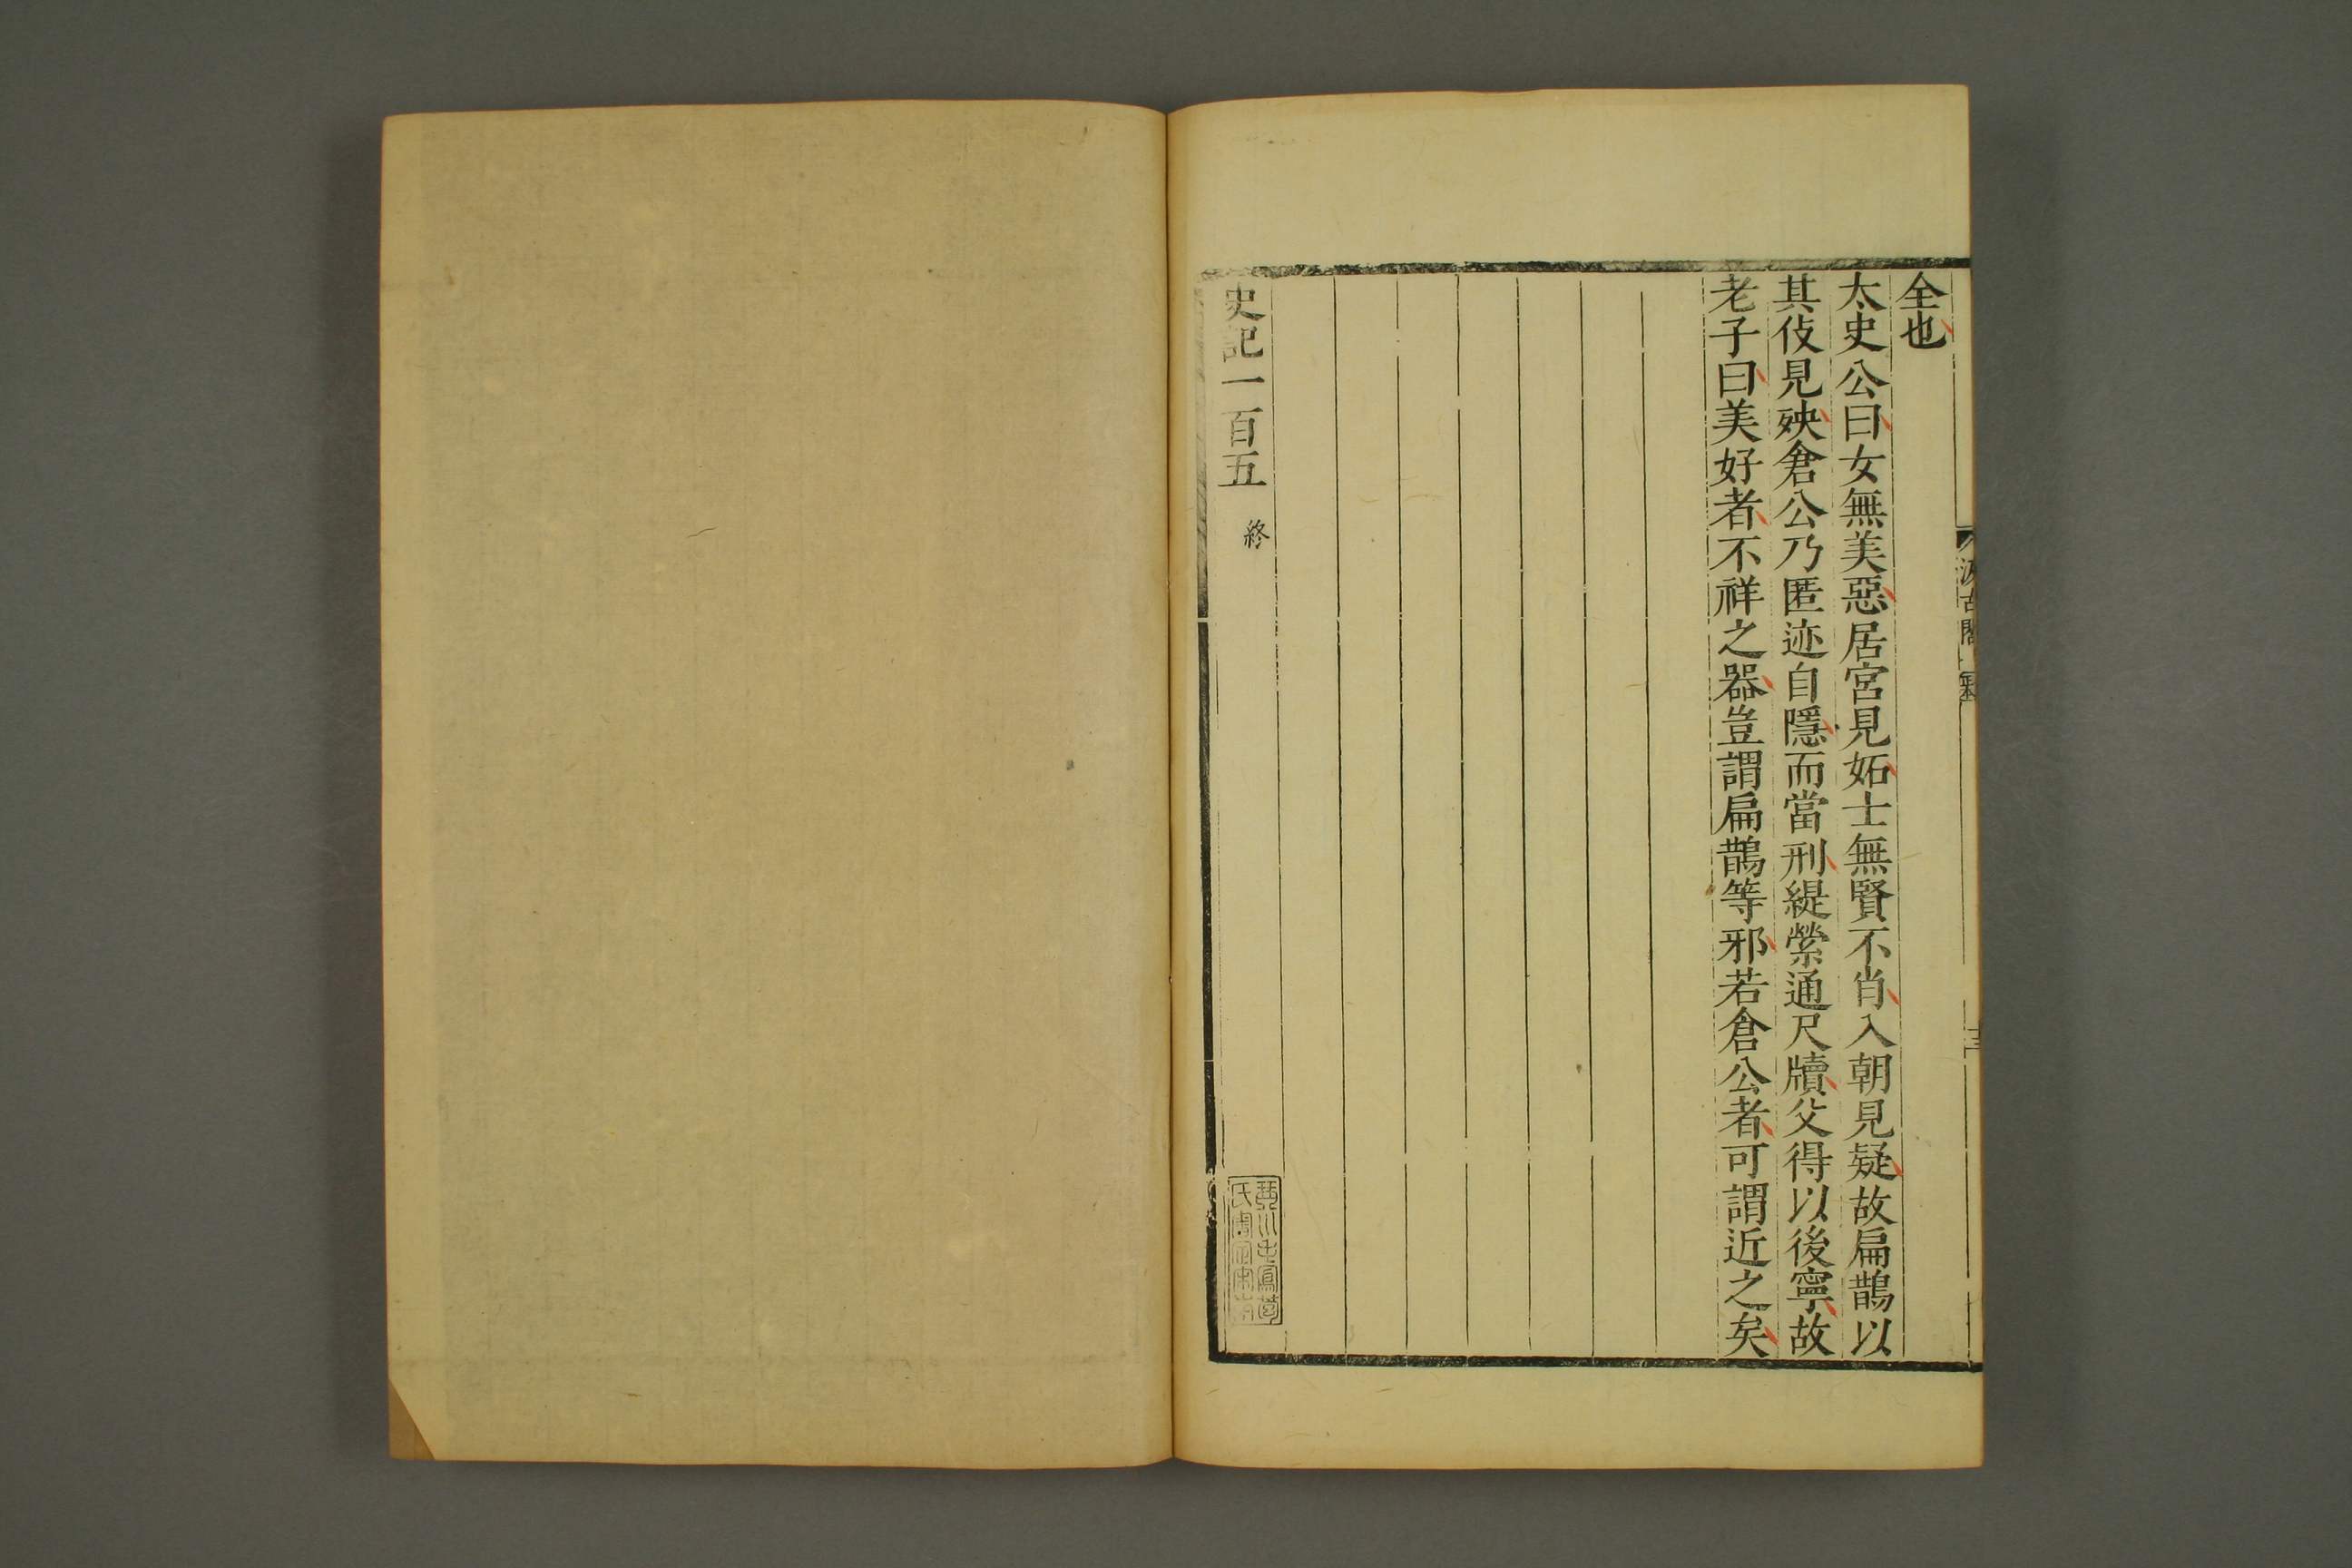 全也
太史公曰女無美惡居宮見妬士無賢不肖入朝見疑故扁鵲以
其伎見殃倉公乃匿迹自隱而當刑緹縈通尺牘父得以後寧故
老子曰美好者不祥之器豈謂扁鵲等邪若倉公者可謂近之矣
史記一百五
終
汲古閣